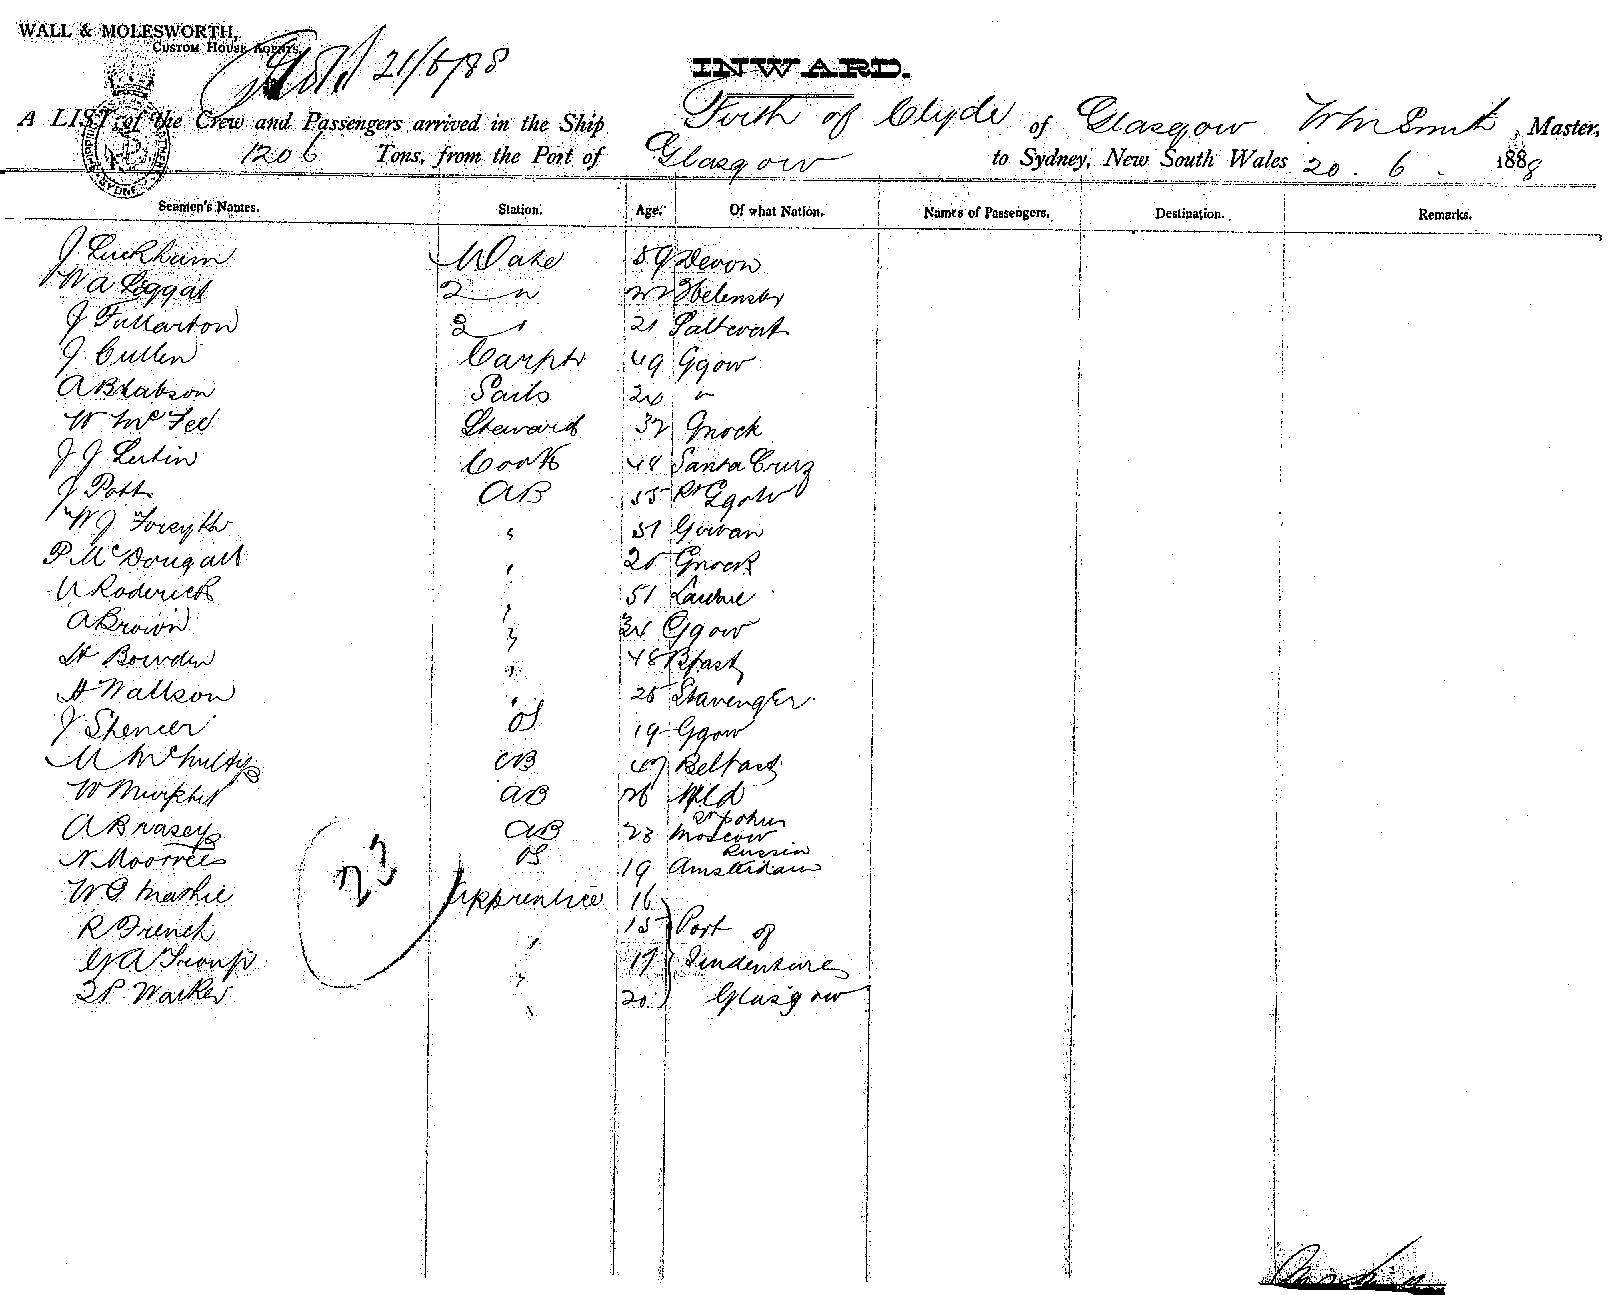 WALL & MOLESWORTH,
CUSTOM HOUSE AGENTS
21/6/88
INWARD.
A LIST of the Crew and Passengers arrived in the Ship Firth of Clyde of Glasgow Wm Smith, Master,
1206 Tons, from the Port of Glasgow to Sydney, New South Wales 20. 6. 1888
Seamen's Names. Station. Age. Of what Nation. Names of Passengers. Destination. Remarks.
J Luckham Mate 59 Devon
W A Loggat 2 " 22 Helensbr
J Fullarton 3 " 21 Saltcoat
J Cullen Carptr 49 Ggow
A B Sails 24 "
W McFee Steward 32 Gnock
J J Cook 44 Santa Cruz
J Potts AB 55 Pt Ggow
W J Forsyth " 51 Girvan
P McDougall " 25 Gnock
Roderick " 51
A Brown " 34 Ggow
H Bowden " 48 Bfast
A Wattson " 25 Stavenger
J Spencer OS 19 Ggow
M McNulty AB Belfast
W Murphy AB 26 Nfld
St Johns
A Brasey AB 23 Moscow
Russia
N Moorrees OS 19 Amsterdam
W G Mathie Apprentice 16
R French " 15 Port of
G A Troup " 17 Indenture
Walker " 20 Glasgow
23